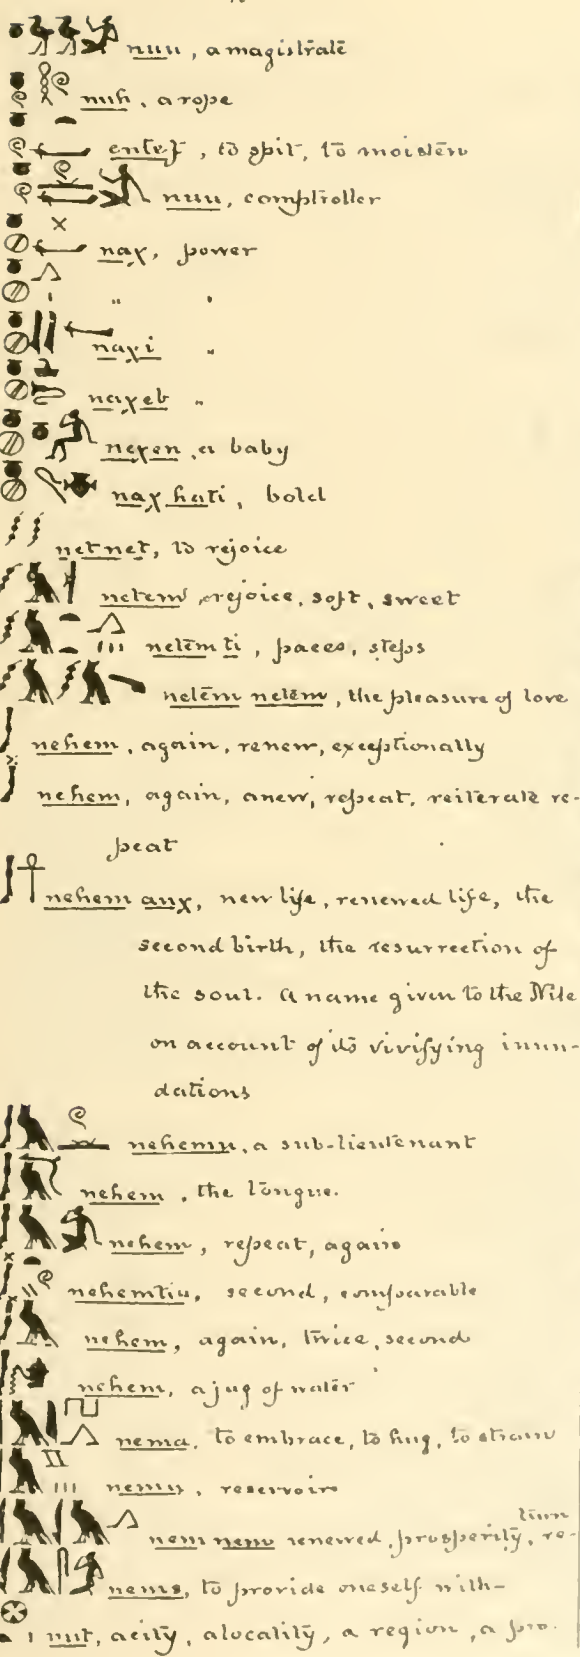 nuu, a magistrate
nuh, a rope
entef, to spit, to moisten
nuu, comptroller
naχ, power
" "
naχi "
naχeb "
neχen, a baby
naχ hati, bold
net net, to rejoice
netem, rejoice, soft, sweet
netem ti, paces, steps
netem netem, the pleasure of love
nehem, again, renew, exceptionally
nehem, again, anew, repeat, reiterate re-
peat
nehem anχ, new life, renewed life, the
second birth, the resurrection of
the soul. A name given to the Nile
on account of its vivifying inun-
dations
nehemu, a sub-lieutenant
nehem, the tongue.
nehem, repeat, again
nehemtiu, second, comparable
nehem, again, twice, second
nehem, a jug of water
nema, to embrace, to hug, to strain
nemu, reservoir
nem nem renewed prosperity, re-
tion
nems, to provide oneself with-
nut, a city, a locality, a region, a pro.